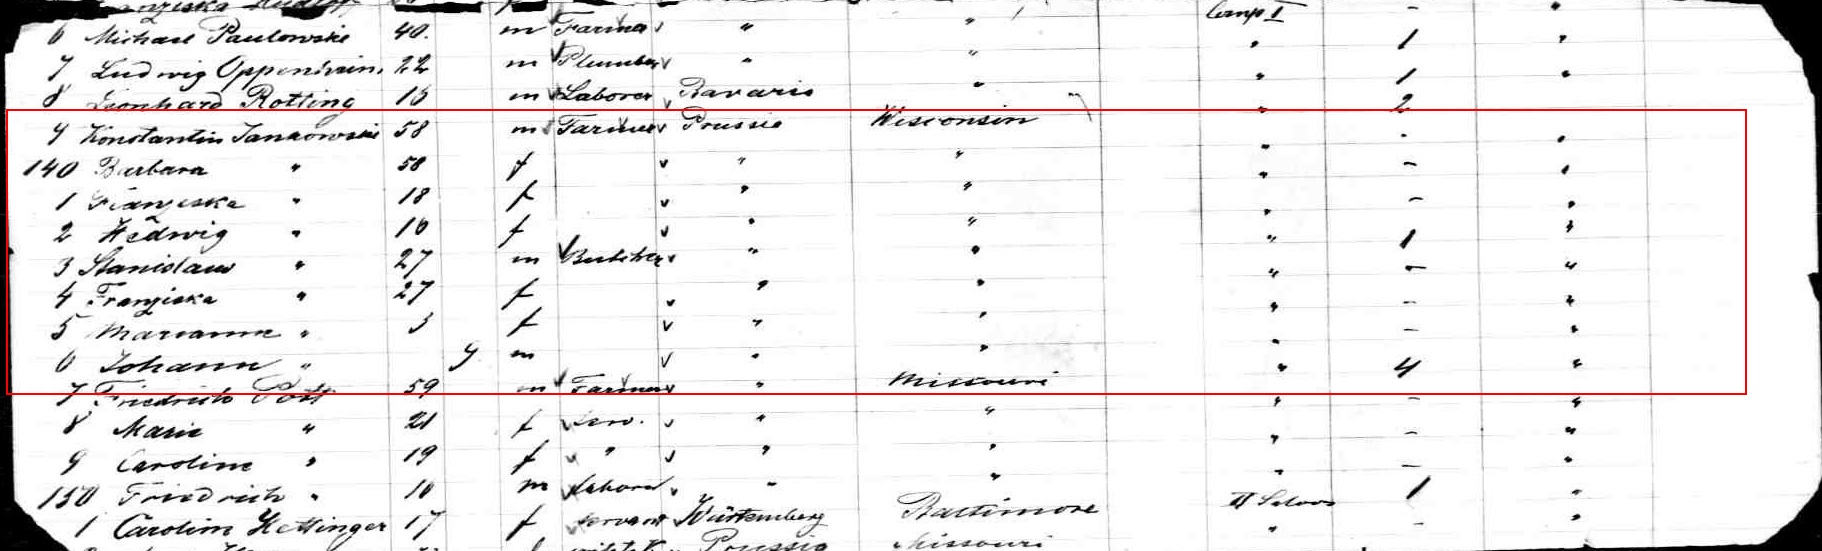 6 Michael Paulowski 40. m Farmer " " Comp I - "
7 Ludwig Oppenheim 22 m Plumber " " " 1 "
8 Leonhard Rotting 15 m Laborer Bavaria " " 1 "
9 Konstantin Jankowski 58 m Farmer Prussia Wisconsin " 2
140 Barbara " 58 f " " " - "
1 Franziska " 18 f " " " - "
2 Hedwig " 16 f " " " - "
3 Stanislaus " 27 m " " " 1 "
4 Franziska " 27 f " " " - "
5 Marianna " 3 f " " " - "
6 Johann " 9 m " " " - "
7 Friedrich Pott 59 m Farmer " Missouri " 4 "
8 Marie " 21 f serv. " " " - "
9 Caroline " 19 f " " " " - "
150 Friedrich " 10 m Labor " " " - "
1 Carolin Hettinger 17 f servant Würtemberg Baltimore II Saloon 1 "
Prussia Missouri " - "